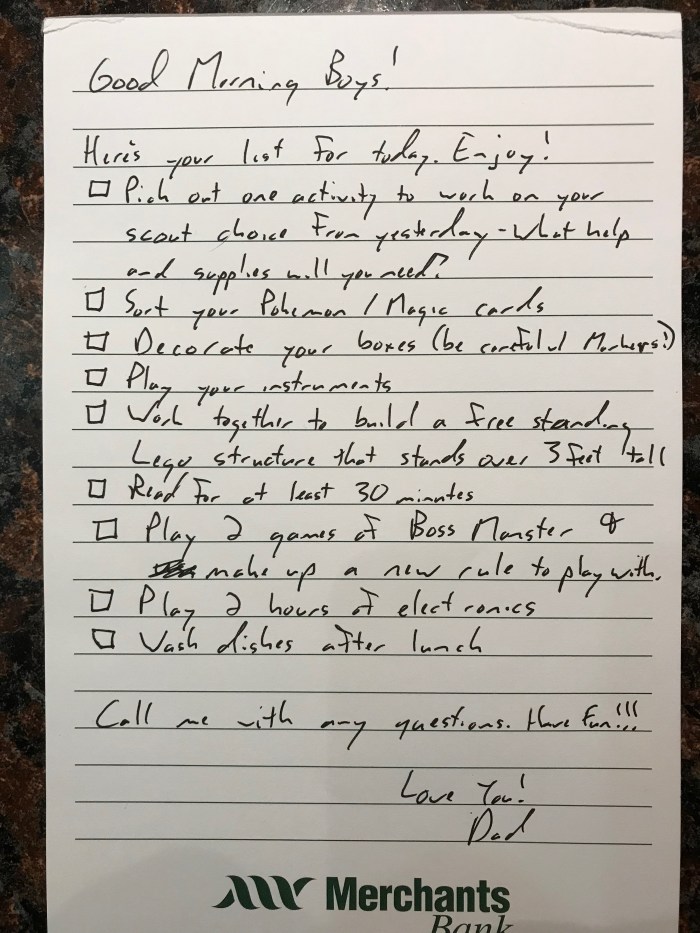 Good Morning Boys!
Here's your list for today. Enjoy!
Pick out one activity to work on your
scout choice from yesterday - What help
and supplies will you need?
Sort your Pokemon / Magic cards
Decorate your boxes (be careful w/ Markers!)
Play your instruments
Work together to build a free standing
Lego structure that stands over 3 feet tall
Read for at least 30 minutes
Play 2 games of Boss Monster &
make up a new rule to play with.
Play 2 hours of electronics
Wash dishes after lunch
Call me with any questions. Have fun!!!
Love You!
Dad
Merchants
Bank